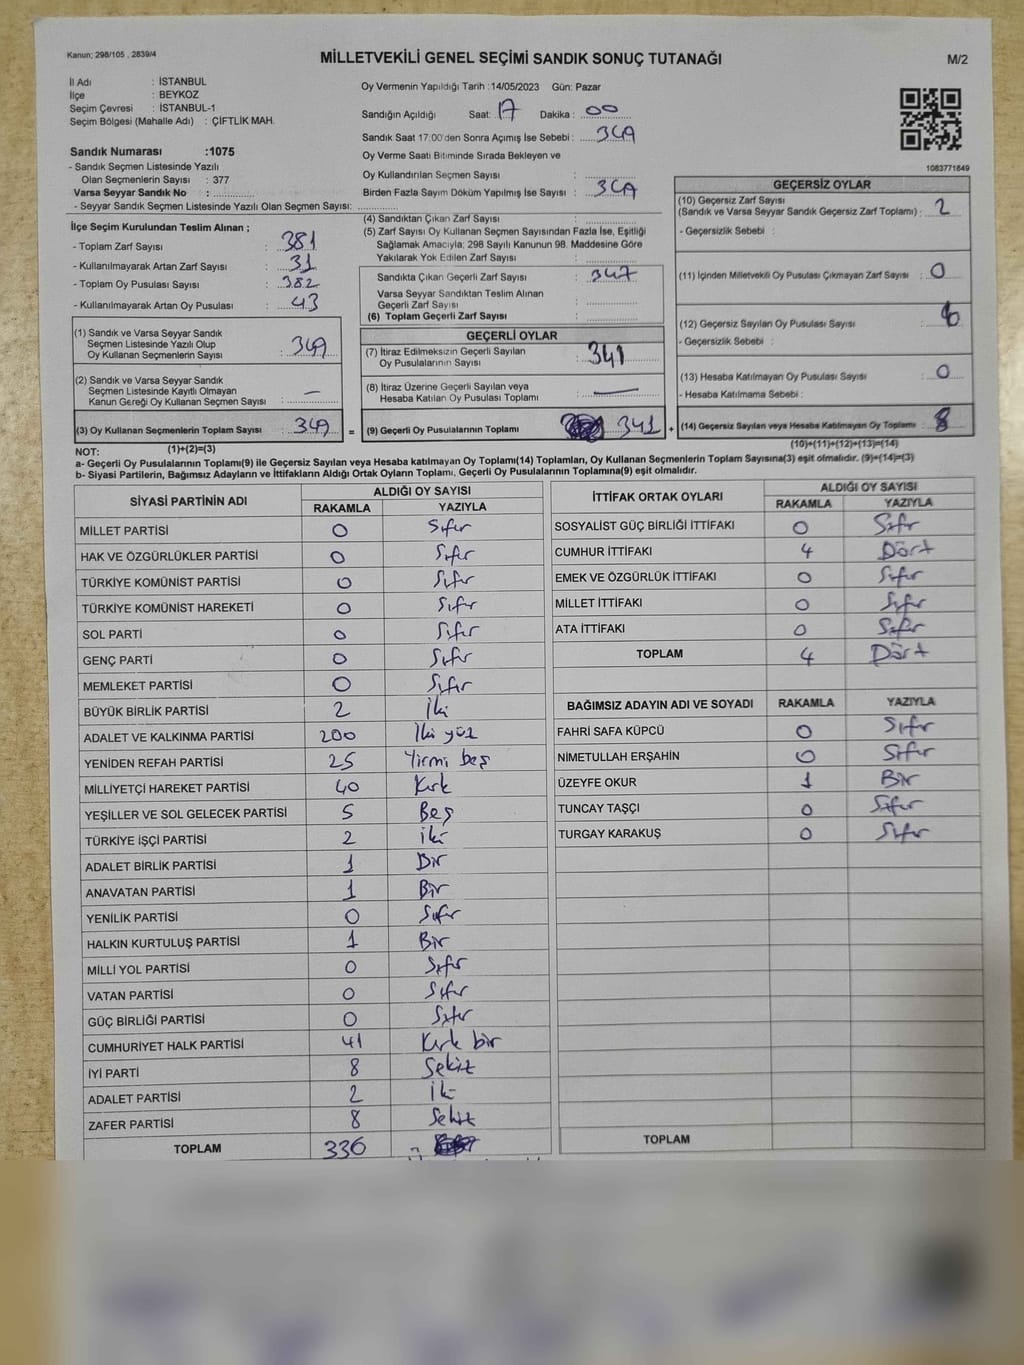 Kanun; 298/105 , 2839/4
MİLLETVEKİLİ GENEL SEÇİMİ SANDIK SONUÇ TUTANAĞI
M/2
İl Adı : İSTANBUL
İlçe : BEYKOZ
Seçim Çevresi : İSTANBUL-1
Seçim Bölgesi (Mahalle Adı) : ÇİFTLİK MAH.
Sandık Numarası :1075
- Sandık Seçmen Listesinde Yazılı
Olan Seçmenlerin Sayısı : 377
Varsa Seyyar Sandık No :
- Seyyar Sandık Seçmen Listesinde Yazılı Olan Seçmen Sayısı:
Oy Vermenin Yapıldığı Tarih :14/05/2023 Gün: Pazar
Sandığın Açıldığı Saat: 17 Dakika : 00
Sandık Saat 17:00'den Sonra Açımış İse Sebebi : 349
Oy Verme Saati Bitiminde Sırada Bekleyen ve
Oy Kullandırılan Seçmen Sayısı :
Birden Fazla Sayım Döküm Yapılmış İse Sayısı : 349
1083771849
İlçe Seçim Kurulundan Teslim Alınan ;
- Toplam Zarf Sayısı : 381
- Kullanılmayarak Artan Zarf Sayısı : 31
- Toplam Oy Pusulası Sayısı : 382
- Kullanılmayarak Artan Oy Pusulası : 43
(1) Sandık ve Varsa Seyyar Sandık
Seçmen Listesinde Yazılı Olup
Oy Kullanan Seçmenlerin Sayısı : 349
(2) Sandık ve Varsa Seyyar Sandık
Seçmen Listesinde Kayıtlı Olmayan
Kanun Gereği Oy Kullanan Seçmen Sayısı : —
(3) Oy Kullanan Seçmenlerin Toplam Sayısı : 349 =
(4) Sandıktan Çıkan Zarf Sayısı :
(5) Zarf Sayısı Oy Kullanan Seçmen Sayısından Fazla İse, Eşitliği
Sağlamak Amacıyla; 298 Sayılı Kanunun 98. Maddesine Göre
Yakılarak Yok Edilen Zarf Sayısı :
Sandıkta Çıkan Geçerli Zarf Sayısı : 347
Varsa Seyyar Sandıktan Teslim Alınan
Geçerli Zarf Sayısı :
(6) Toplam Geçerli Zarf Sayısı :
GEÇERLİ OYLAR
(7) İtiraz Edilmeksizin Geçerli Sayılan
Oy Pusulalarının Sayısı : 341
(8) İtiraz Üzerine Geçerli Sayılan veya
Hesaba Katılan Oy Pusulası Toplamı : —
(9) Geçerli Oy Pusulalarının Toplamı 341 +
GEÇERSİZ OYLAR
(10) Geçersiz Zarf Sayısı
(Sandık ve Varsa Seyyar Sandık Geçersiz Zarf Toplamı) : 2
- Geçersizlik Sebebi :
(11) İçinden Milletvekili Oy Pusulası Çıkmayan Zarf Sayısı : 0
(12) Geçersiz Sayılan Oy Pusulası Sayısı : 6
- Geçersizlik Sebebi :
(13) Hesaba Katılmayan Oy Pusulası Sayısı : 0
- Hesaba Katılmama Sebebi :
(14) Geçersiz Sayılan veya Hesaba Katılmayan Oy Toplamı : 8
NOT: (1)+(2)=(3) (10)+(11)+(12)+(13)=(14)
a- Geçerli Oy Pusulalarının Toplamı(9) ile Geçersiz Sayılan veya Hesaba katılmayan Oy Pusulası Toplamı(14) Toplamları, Oy Kullanan Seçmenlerin Toplam Sayısına(3) eşit olmalıdır. (9)+(14)=(3)
b- Siyasi Partilerin, Bağımsız Adayların ve İttifakların Aldığı Ortak Oyların Toplamı, Geçerli Oy Pusulalarının Toplamına(9) eşit olmalıdır.
SİYASİ PARTİNİN ADI ALDIĞI OY SAYISI
RAKAMLA YAZIYLA
MİLLET PARTİSİ 0 Sıfır
HAK VE ÖZGÜRLÜKLER PARTİSİ 0 Sıfır
TÜRKİYE KOMÜNİST PARTİSİ 0 Sıfır
TÜRKİYE KOMÜNİST HAREKETİ 0 Sıfır
SOL PARTİ 0 Sıfır
GENÇ PARTİ 0 Sıfır
MEMLEKET PARTİSİ 0 Sıfır
BÜYÜK BİRLİK PARTİSİ 2 İki
ADALET VE KALKINMA PARTİSİ 200 İki yüz
YENİDEN REFAH PARTİSİ 25 Yirmi beş
MİLLİYETÇİ HAREKET PARTİSİ 40 Kırk
YEŞİLLER VE SOL GELECEK PARTİSİ 5 Beş
TÜRKİYE İŞÇİ PARTİSİ 2 İki
ADALET BİRLİK PARTİSİ 1 Bir
ANAVATAN PARTİSİ 1 Bir
YENİLİK PARTİSİ 0 Sıfır
HALKIN KURTULUŞ PARTİSİ 1 Bir
MİLLİ YOL PARTİSİ 0 Sıfır
VATAN PARTİSİ 0 Sıfır
GÜÇ BİRLİĞİ PARTİSİ 0 Sıfır
CUMHURİYET HALK PARTİSİ 41 Kırk bir
İYİ PARTİ 8 Sekiz
ADALET PARTİSİ 2 İki
ZAFER PARTİSİ 8 Sekiz
TOPLAM 336
İTTİFAK ORTAK OYLARI ALDIĞI OY SAYISI
RAKAMLA YAZIYLA
SOSYALİST GÜÇ BİRLİĞİ İTTİFAKI 0 Sıfır
CUMHUR İTTİFAKI 4 Dört
EMEK VE ÖZGÜRLÜK İTTİFAKI 0 Sıfır
MİLLET İTTİFAKI 0 Sıfır
ATA İTTİFAKI 0 Sıfır
TOPLAM 4 Dört
BAĞIMSIZ ADAYIN ADI VE SOYADI RAKAMLA YAZIYLA
FAHRİ SAFA KÜPCÜ 0 Sıfır
NİMETULLAH ERŞAHİN 0 Sıfır
ÜZEYFE OKUR 1 Bir
TUNCAY TAŞÇI 0 Sıfır
TURGAY KARAKUŞ 0 Sıfır
TOPLAM